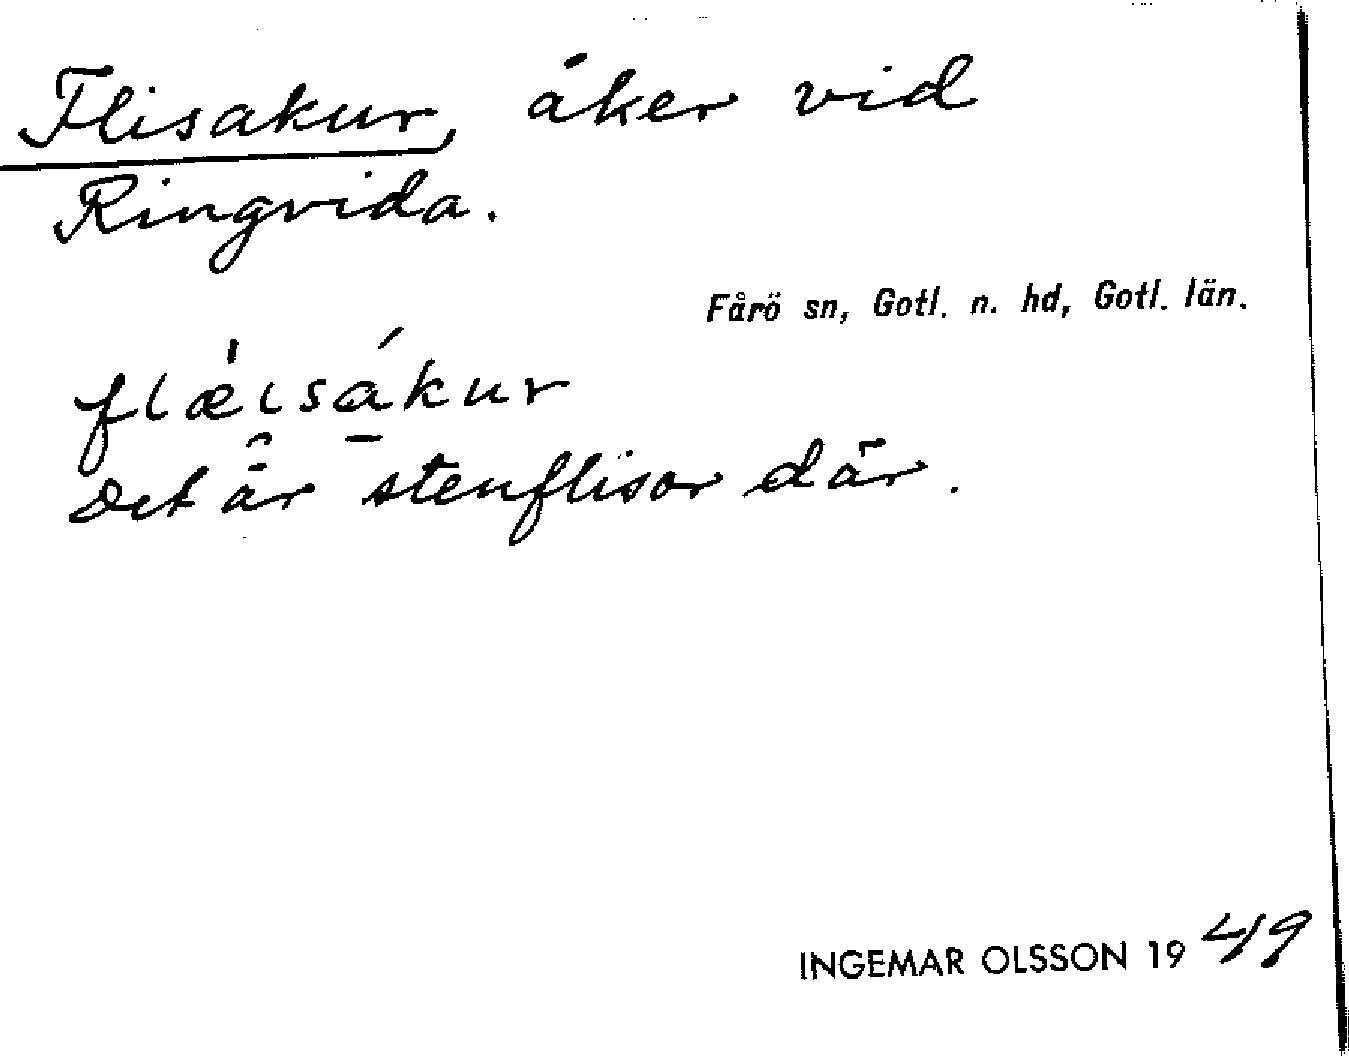 Flisakur, åker vid
Ringvida.
Fårö sn, Gotl. n. hd, Gotl. län.
flǽɩsákur
Det är stenflisor där.
INGEMAR OLSSON 1949